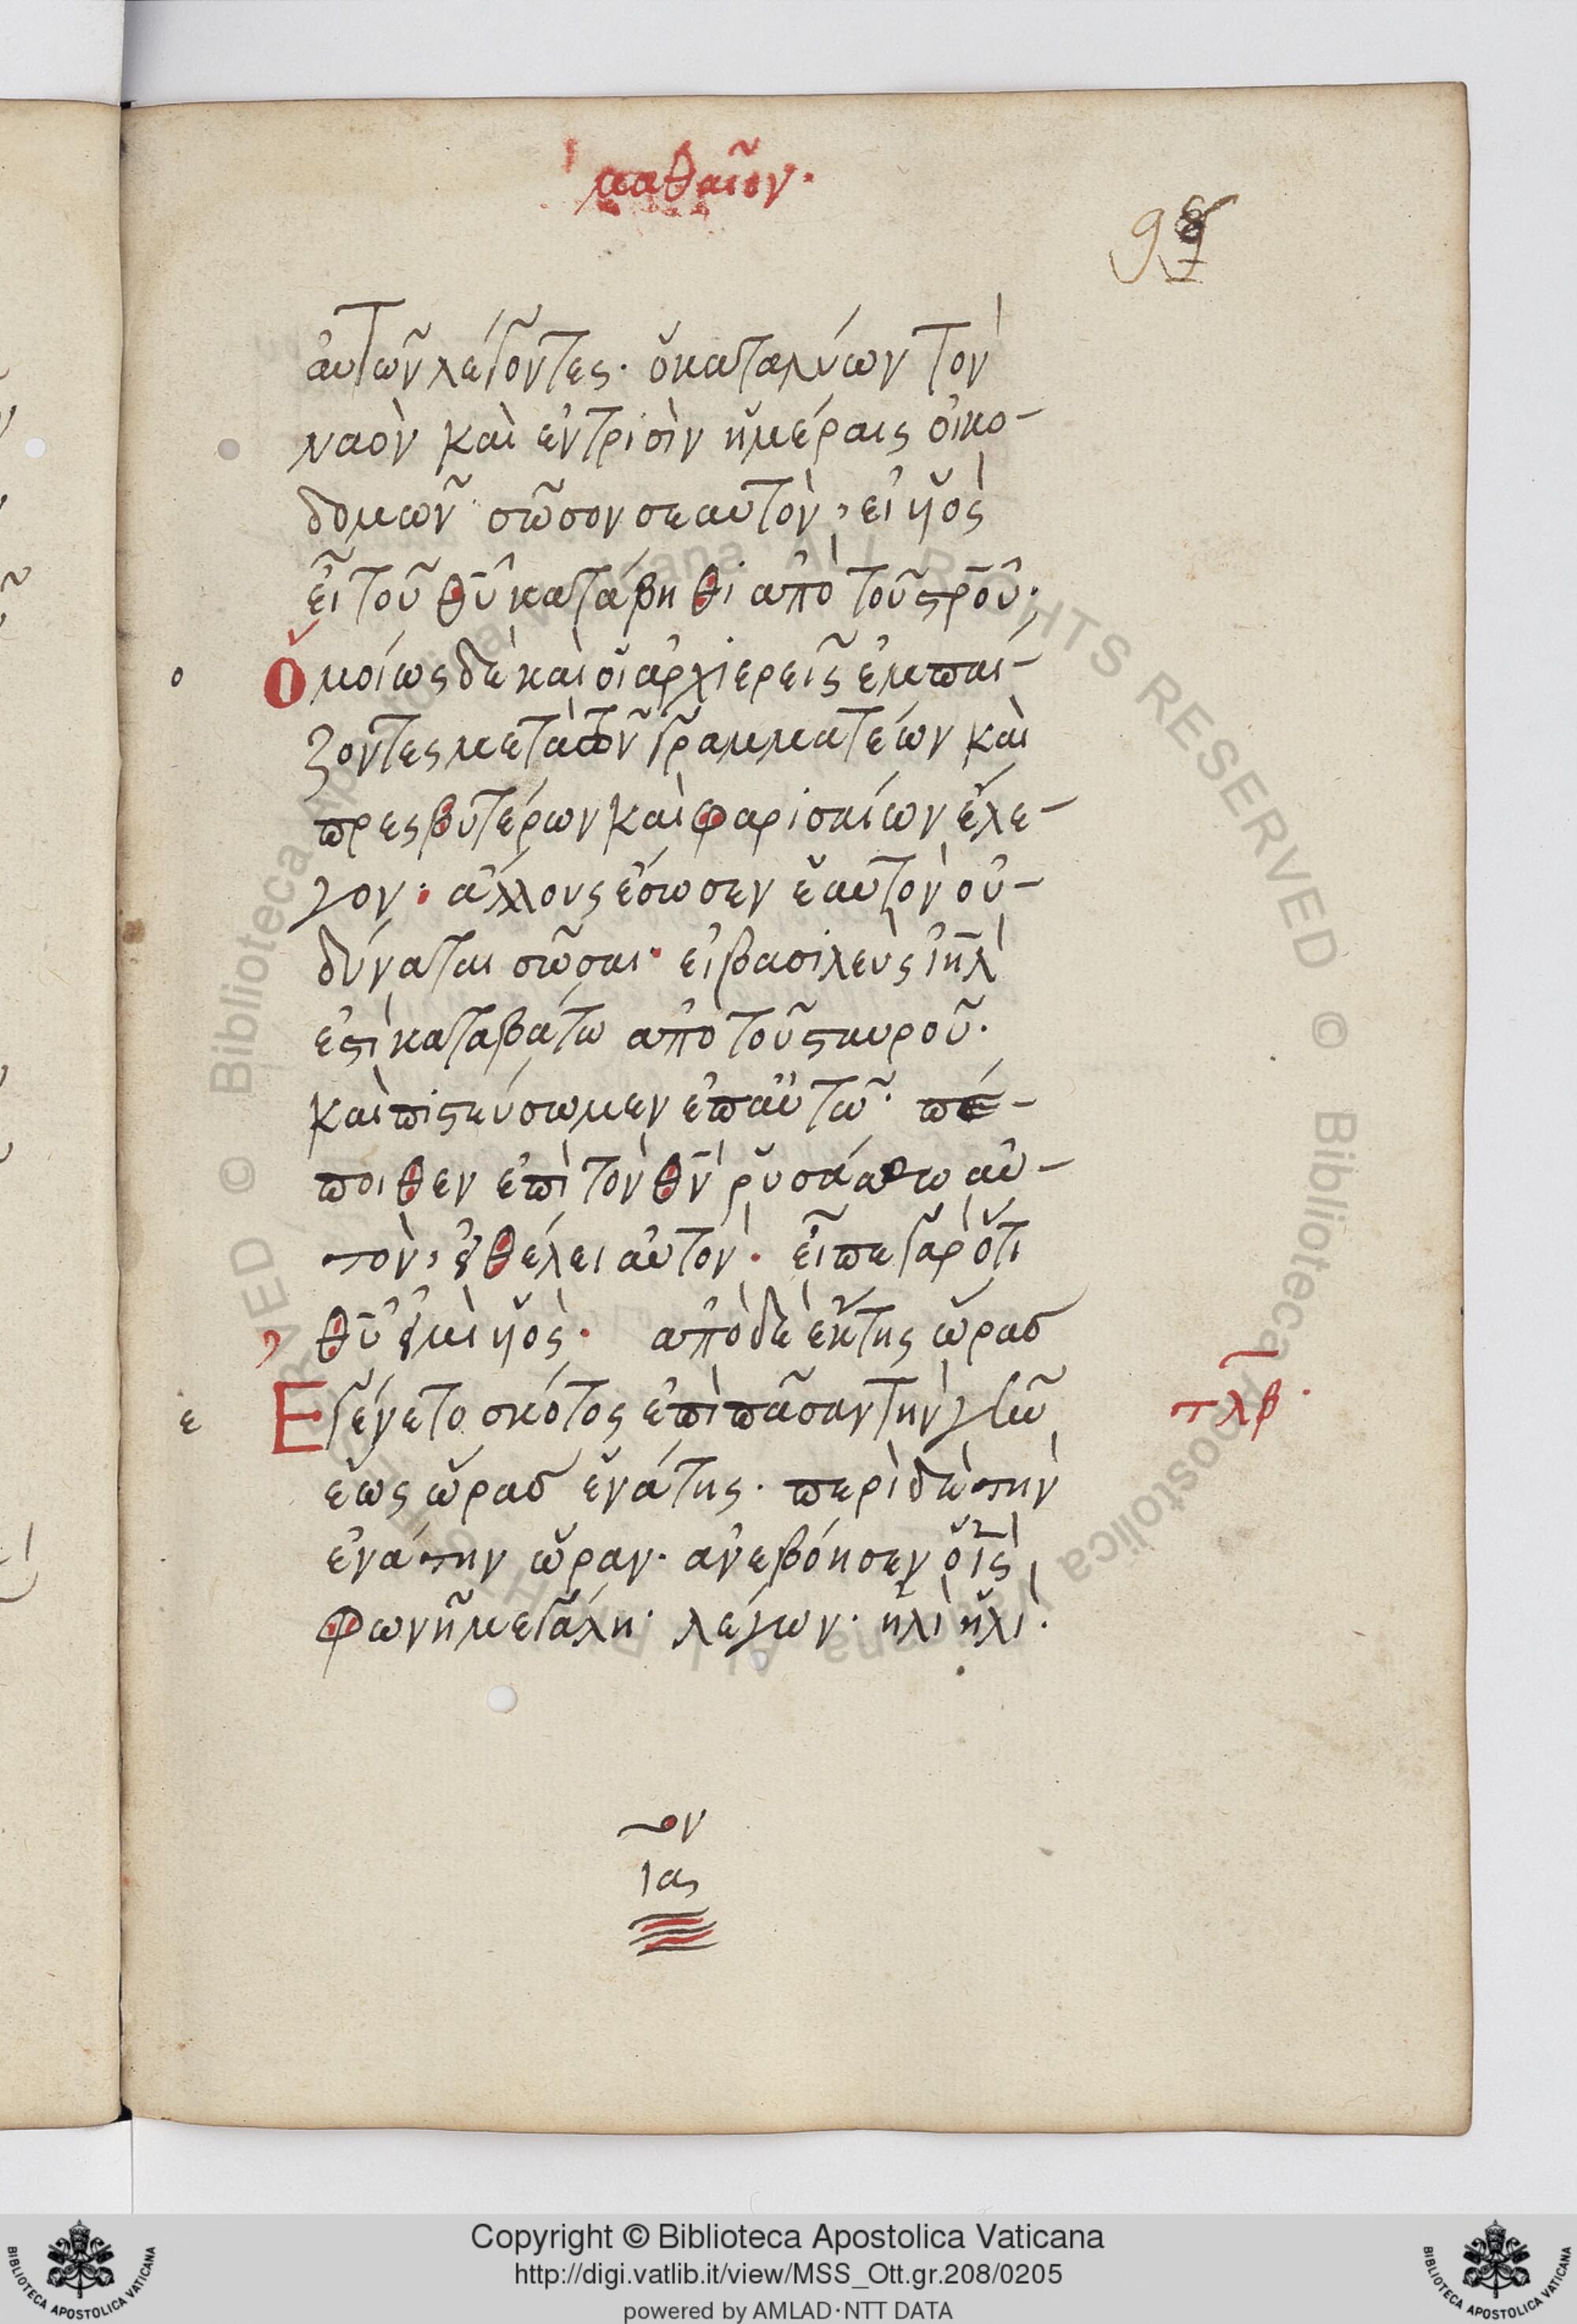 μαθαῖον·
98
αὐτῶν λέγοντες· ὁ καταλύων τὸν
ναὸν καὶ ἐν τρισὶν ἡμέραις οἰκο-
δομῶν· σῶσον σεαυτὸν, εἰ υἱὸς
εἶ τοῦ θ̅υ̅ κατάβηθι ἀπὸ τοῦ ϛρ̅οῦ·
ο Ὁμοίως δὲ καὶ οἱ ἀρχιερεῖς ἐμπαί-
ζοντες μετὰ τῶν γραμματέων καὶ
πρεσβυτέρων καὶ φαρισαίων ἔλε-
γον: ἄλλους ἔσωσεν ἑαυτὸν οὐ-
δύναται σῶσαι· εἰ βασιλεὺς ἰη̅λ
ἐϛὶ καταβάτω ἀπὸ τοῦ ϛαυροῦ·
καὶ πιϛεύσωμεν ἐπ αὐτῶ· πέ-
ποιθεν ἐπὶ τὸν θ̅ν̅ ῥυσάσθω αὐ-
τὸν, εἰ θέλει αὐτὸν· εἶπε γὰρ ὅτι
θ̅υ̅ εἰμὶ υἱὸς· ἀπὸ δὲ ἕκτης ὥρας
ε Ἐγένετο σκότος ἐπὶ πᾶσαν τὴν γῆν
τλβ·
ἕως ὥρας ἐνάτης· περὶ δὲ τὴν
ἐνάτην ὥραν· ἀνεβόησεν ὁ ι̅ς̅
φωνῆ μεγάλη· λέγων· ἠλὶ ἠλὶ·